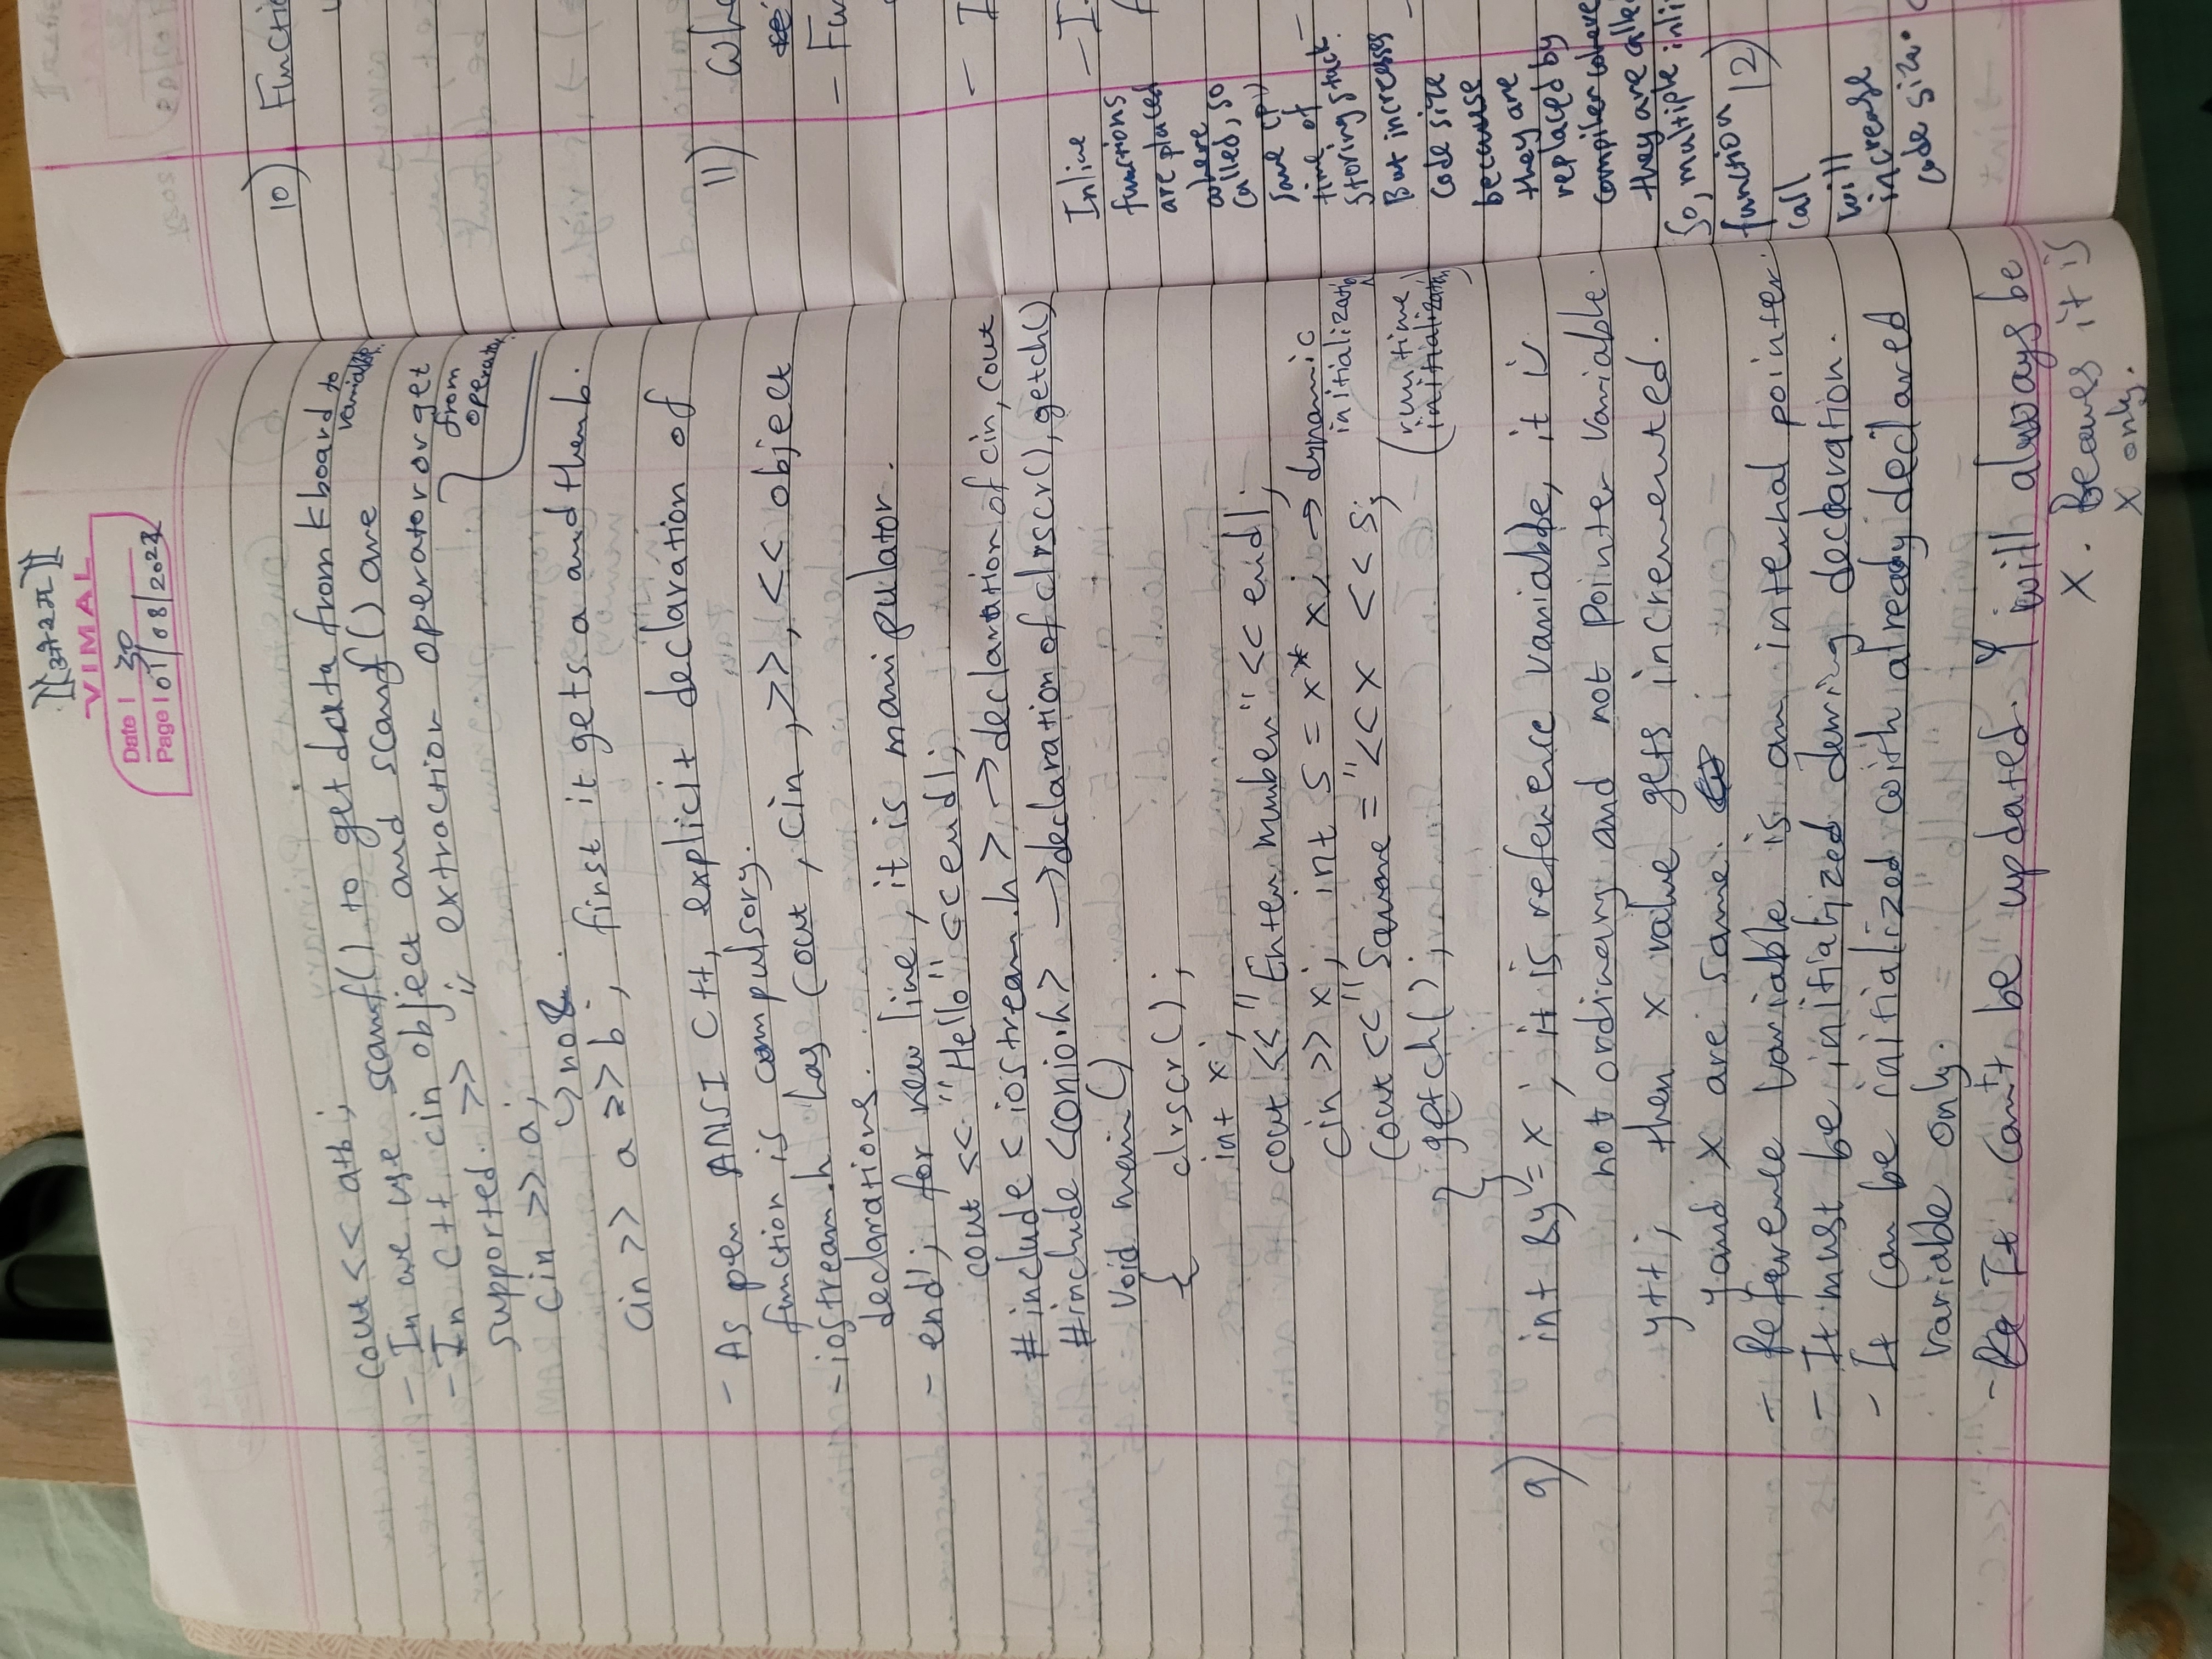 ][ओ३म][
VIMAL
Date | 30
Page | 01/08/2022
cout << a+b ;
- In we use scanf() to get data from kboard to
variable.
- In C++ cin object and scanf() are
supported. >> is extraction operator or get
from
operator
cin >> a;
↳ no &.
cin >> a >> b ; first it gets a and then b.
- As per ANSI C++, explicit declaration of
function is compulsory.
- iostream.h has cout , cin , >>, << object
declarations.
- endl; for new line, it is manipulator.
cout << "Hello" << endl;
# include < iostream.h > → declaration of cin, cout
#include <conio.h> → declaration of clrscr(), getch()
void main()
{ clrscr();
int x ;
cout << "Enter number" << endl;
cin >> x ; int s = x * x; → dynamic
initialization
cout << "Square = "<< x << s;
(run time
initialization)
getch();
}
9) int &y = x ; it is reference variable, it is
not ordinary and not pointer variable.
y++ ; then x value gets incremented.
y and x are same.
- Reference variable is an internal pointer.
- It must be initialized during declaration.
- It can be initialized with already declared
variable only.
- It can't be updated. Y will always be
x. Beaues it is
x only.
10) Functi
11) Whe
- Fu
- I
- I
Inline
functions
are placed
where
called, so
save CPU
time of
storing stack.
But increases
code size
because
they are
replaced by
compiler where
they are calle
So, multiple inli
function
12)
call
will
increase
code size.